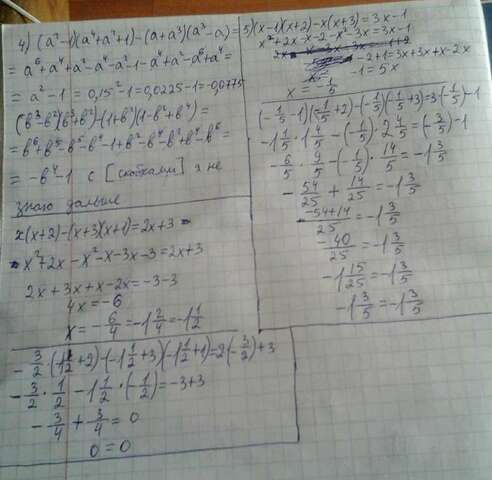 4) (a²-1)(a⁴+a²+1)-(a+a³)(a³-a)=
= a⁶+a⁴+a²-a⁴-a²-1-a⁴+a²-a⁶+a⁴=
= a²-1=0,15²-1=0,0225-1=-0,9775
(в³-в²)(в³+в²)-(1+в²)(1-в²+в⁴)=
= в⁶+в⁵-в⁵-в⁴-1+в²-в⁴-в²+в⁴-в⁶=
= -в⁴-1 с [скобками] я не
знаю дальше
x(x+2)-(x+3)(x+1)=2x+3
x²+2x-x²-x-3x-3=2x+3
2x+3x+x-2x=-3-3
4x=-6
x=-6/4=-1 2/4=-1 1/2
-3/2·(-1 1/2+2)-(-1 1/2+3)(-1 1/2+1)=2(-3/2)+3
-3/2·1/2-1 1/2·(-1/2)=-3+3
-3/4+3/4=0
0=0
5)(x-1)(x+2)-x(x+3)=3x-1
x²+2x-x-2-x²-3x=3x-1
-2+1=3x+3x+x-2x
-1=5x
x=-1/5
(-1/5-1)(-1/5+2)-(-1/5)(-1/5+3)=3(-1/5)-1
-1 1/5·1 4/5-(-1/5)·2 4/5=(-3/5)-1
-6/5·9/5-(-1/5)·14/5=-1 3/5
-54/25+14/25=-1 3/5
-54+14/25=-1 3/5
-40/25=-1 3/5
-1 15/25=-1 3/5
-1 3/5=-1 3/5